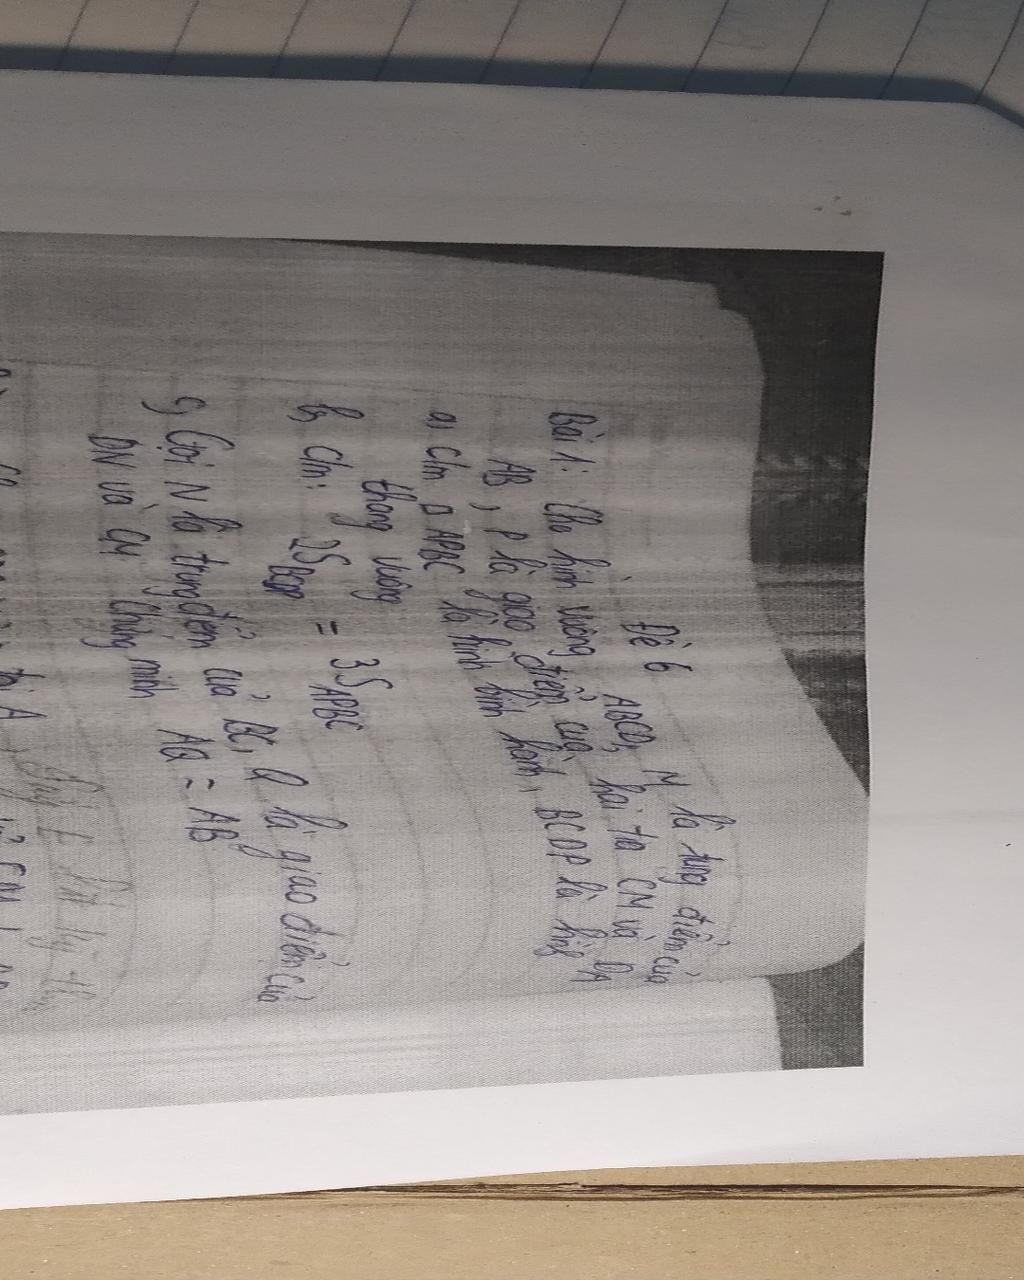 Đề 6
Bài 1: Cho hình vuông ABCD, M là trung điểm của
AB, P là giao điểm của hai tia CM và DA
a, Cm ◊ APBC là hình bình hành, BCDP là hình
thang vuông
b, Cm: 2S BCDP = 3S APBC
c, Gọi N là trung điểm của BC, Q là giao điểm của
DN và CM Chứng minh AQ = AB
tại A